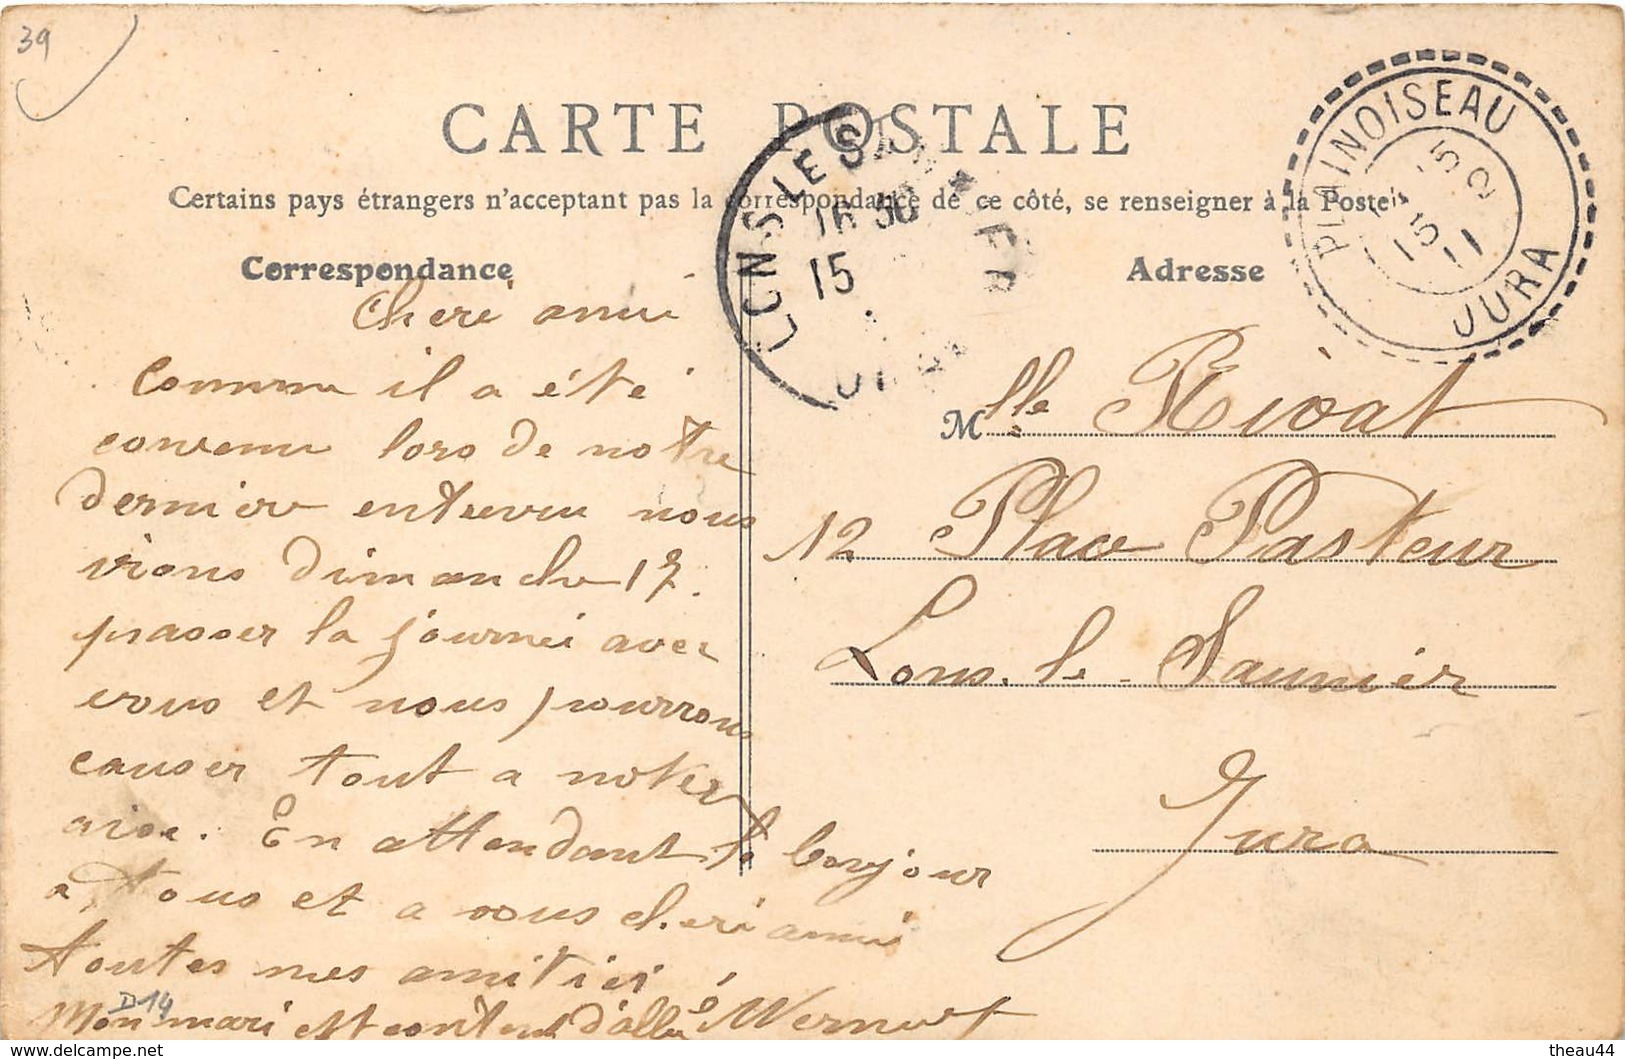 39
CARTE POSTALE
Certains pays étrangers n'acceptent pas la correspondance de ce côté, se renseigner à la Poste
Correspondance
Adresse
PLAINOISEAU
15
11
JURA
LONS-LE-S
16 30
15
Cheri amie
Comme il a été
convenu lors de notre
dernier entrevu nous
irons dimanche 17
passer la journé avec
vous et nous pourrons
causer tout a notre
aise. En attendant le bonjour
a tous et a vous cheri amie
toutes mes amitiés
Mon mari est content d'allé
D14
Mlle Rivat
12 Place Pasteur
Lons-le-Saunier
Jura
delcampe.net
theau44